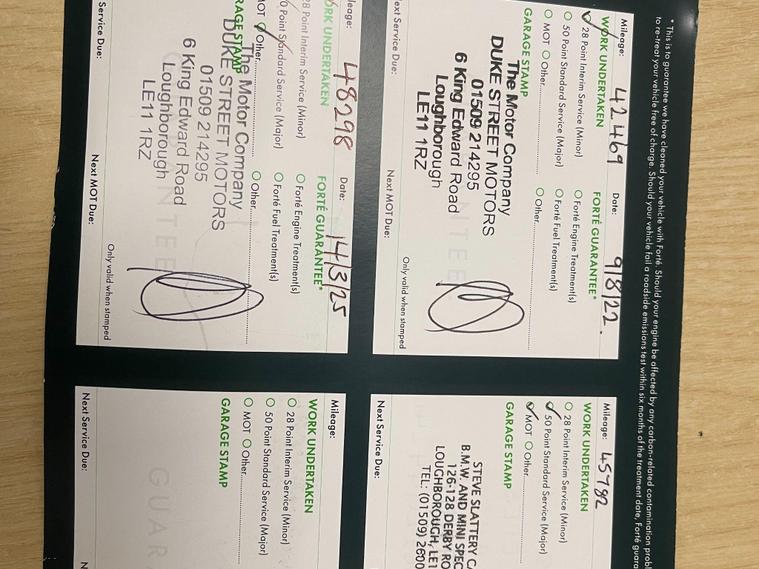 * This is to guarantee we have cleaned your vehicle with Forté. Should your engine be affected by any carbon-related contamination
to re-treat your vehicle free of charge. Should your vehicle fail a roadside emissions test within six months of the treatment date, Forté
Mileage: 42469 Date: 9/8/22.
WORK UNDERTAKEN FORTÉ GUARANTEE*
28 Point Interim Service (Minor) Forté Engine Treatment(s)
50 Point Standard Service (Major) Forté Fuel Treatment(s)
MOT Other Other
GARAGE STAMP
The Motor Company
DUKE STREET MOTORS
01509 214295
6 King Edward Road
Loughborough
LE11 1RZ
Only valid when stamped
Next Service Due: Next MOT Due:
Mileage: 45782
WORK UNDERTAKEN
28 Point Interim Service (Minor)
50 Point Standard Service (Major)
MOT Other
GARAGE STAMP
STEVE SLATTERY
B.M.W. AND MINI
126-128 DERBY
LOUGHBOROUGH,
TEL: (01509)
Next Service Due:
Mileage: 48298 Date: 14/3/25
WORK UNDERTAKEN FORTÉ GUARANTEE*
28 Point Interim Service (Minor) Forté Engine Treatment(s)
50 Point Standard Service (Major) Forté Fuel Treatment(s)
MOT Other Other
GARAGE STAMP
The Motor Company
DUKE STREET MOTORS
01509 214295
6 King Edward Road
Loughborough
LE11 1RZ
Only valid when stamped
Service Due: Next MOT Due:
Mileage:
WORK UNDERTAKEN
28 Point Interim Service (Minor)
50 Point Standard Service (Major)
MOT Other
GARAGE STAMP
GUAR
Next Service Due: